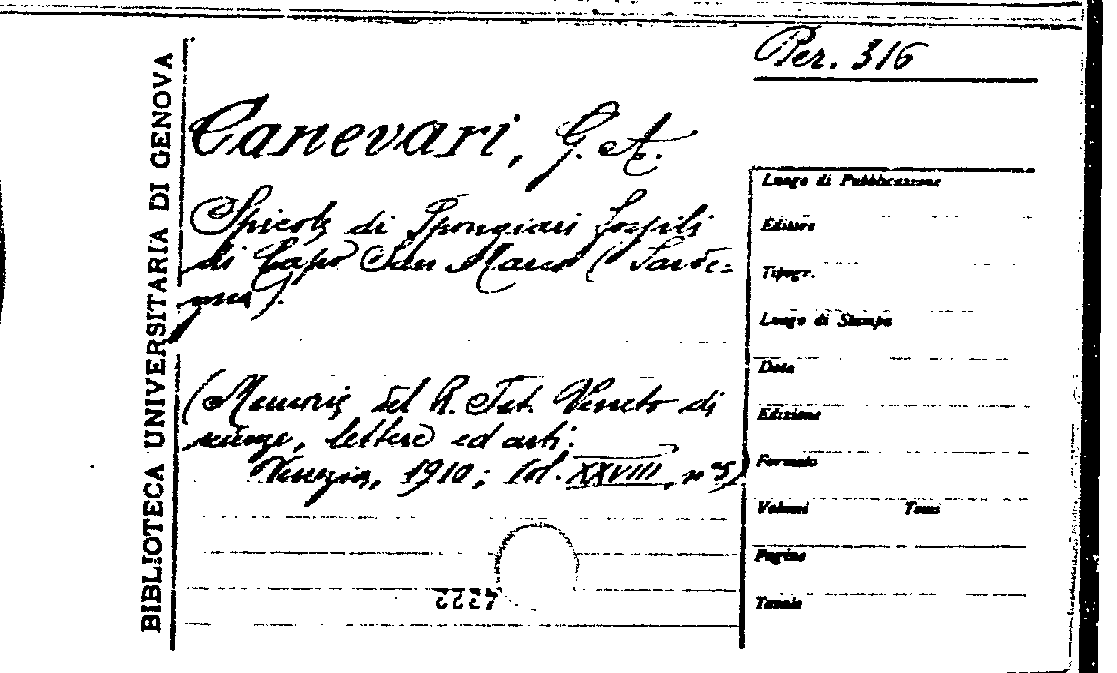 Per. 316
BIBLIOTECA UNIVERSITARIA DI GENOVA
Canevari, G. A.
Spicole di Spongiari fossili
di Capo San Marco (Sarde=
gna).
(Memorie del R. Ist. Veneto di
scienze, lettere ed arti.
Venezia, 1910; Vol. XXVIII, nº 5)
4322
Luogo di Pubblicazione
Editore
Tipogr.
Luogo di Stampa
Data
Edizione
Formato
Volumi Tomi
Pagine
Tavole